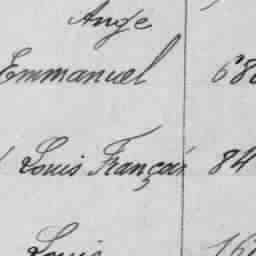 Ange
Emmanuel
Louis François 84
Louis